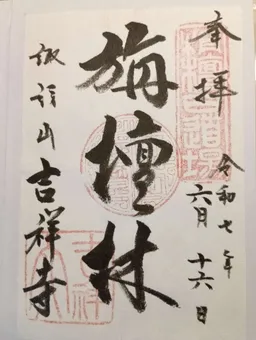 奉拝
令和七年
六月十六日
旃檀林
諏訪山吉祥寺